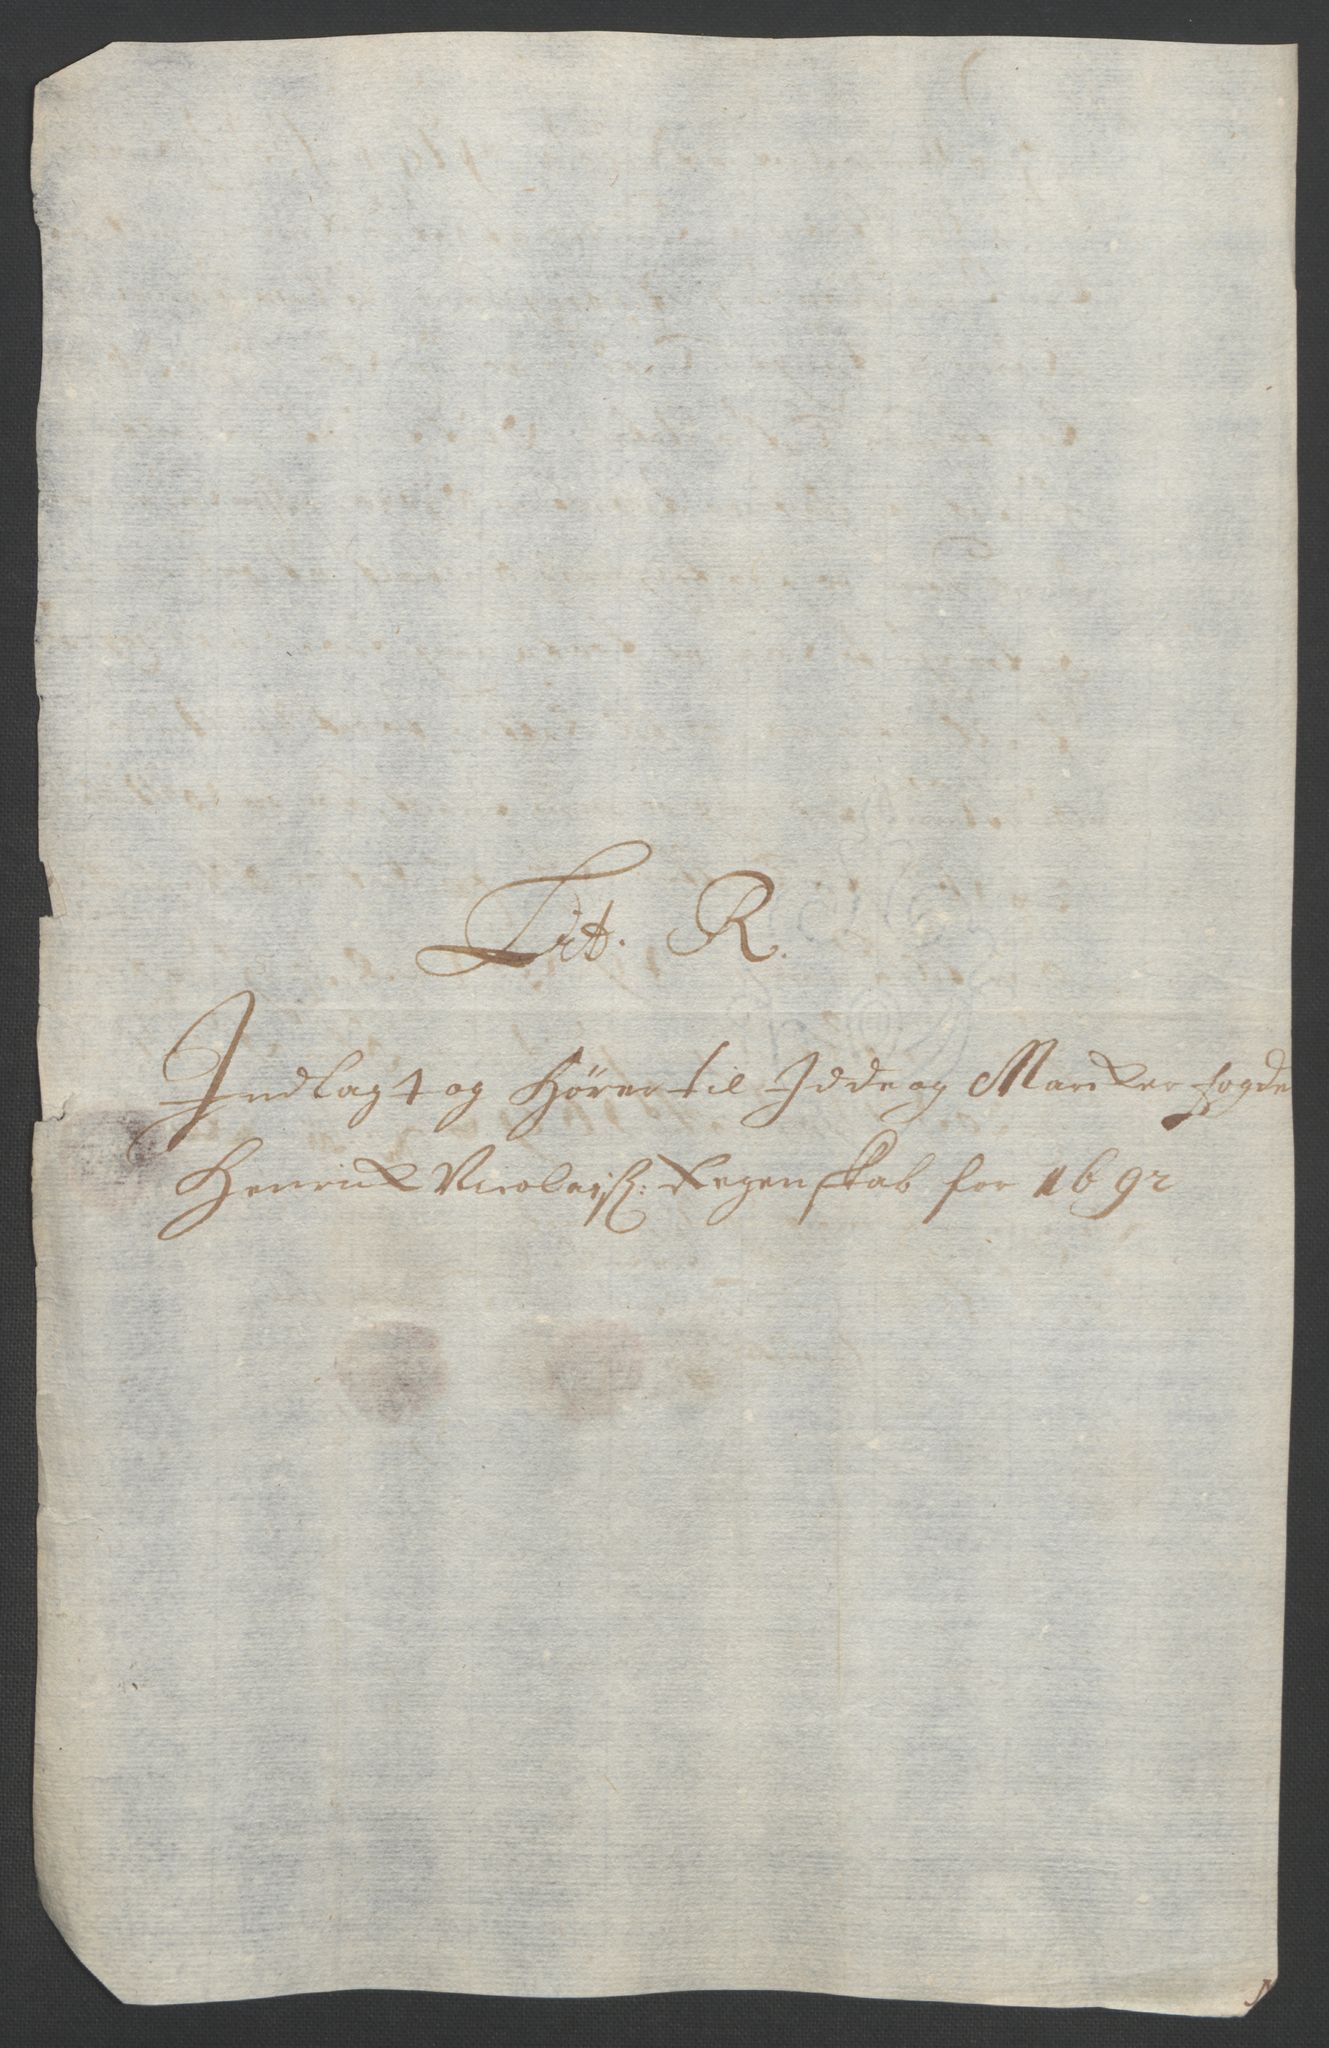 Lit. R.
Indlagt og Hører til Idde og Marcker fogde
Henrick Nicolaisß: Regenskab for 1692